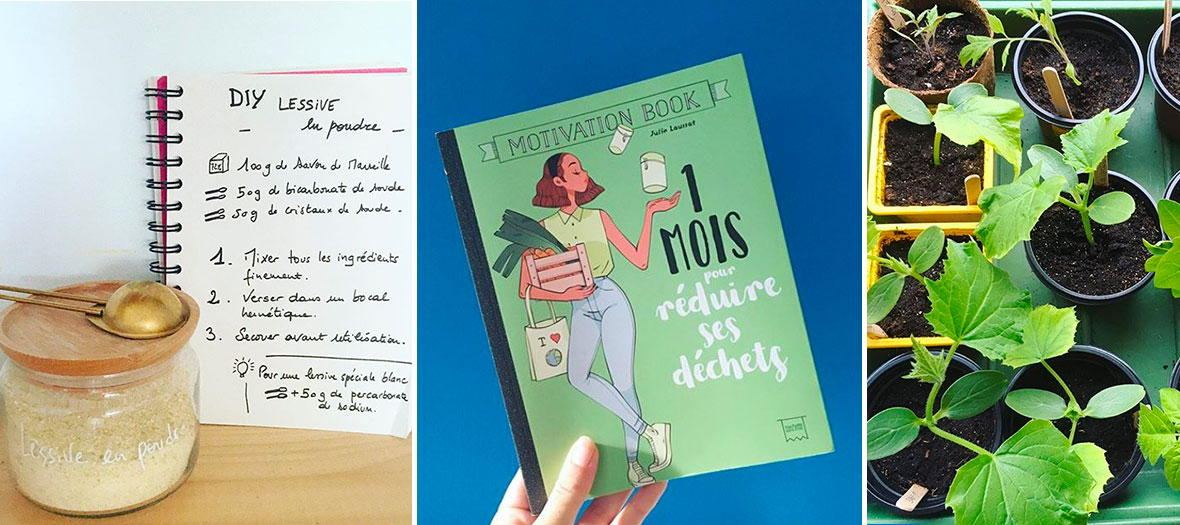 DIY LESSIVE
_ en poudre _
100g de savon de Marseille
50g de bicarbonate de soude
50g de cristaux de soude.
1. Mixer tous les ingrédients
finement.
2. Verser dans un bocal
hermétique.
3. Secouer avant utilisation.
Pour une lessive spéciale blanc
+ 50g de percarbonate
de sodium.
Lessive en poudre
MOTIVATION BOOK
Julie Laussat
1
MOIS
pour
réduire
ses
déchets
I